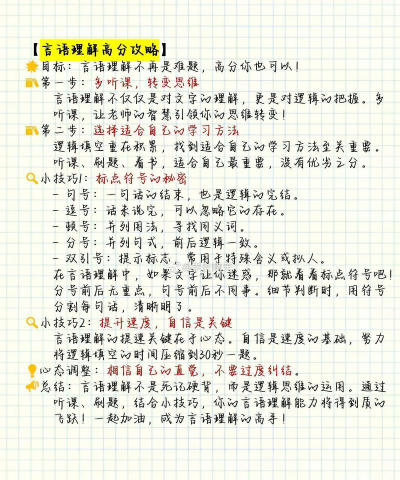 【言语理解高分攻略】
目标：言语理解不再是难题，高分你也可以！
第一步：多听课，转变思维
言语理解不仅仅是对文字的理解，更是对逻辑的把握。多
听课，让老师的智慧引领你的思维转变！
第二步：选择适合自己的学习方法
逻辑填空重在积累，找到适合自己的学习方法至关重要。
听课、刷题、看书，适合自己最重要，没有优劣之分。
小技巧1：标点符号的秘密
- 句号：一句话的结束，也是逻辑的完结。
- 逗号：话未说完，可以忽略它的存在。
- 顿号：并列用法，寻找同义词。
- 分号：并列句式，前后逻辑一致。
- 双引号：提示标志，常用于特殊含义或拟人。
在言语理解中，如果文字让你迷惑，那就看看标点符号吧！
分号前后无重点，句号前后不同事。细节判断时，用符号
分割每句话，清晰明了。
小技巧2：提升速度，自信是关键
言语理解的提速关键在于心态。自信是速度的基础，努力
将逻辑填空的时间压缩到30秒一题。
心态调整：相信自己的直觉，不要过度纠结。
总结：言语理解不是死记硬背，而是逻辑思维的运用。通过
听课、刷题，结合小技巧，你的言语理解能力将得到质的
飞跃！一起加油，成为言语理解的高手！